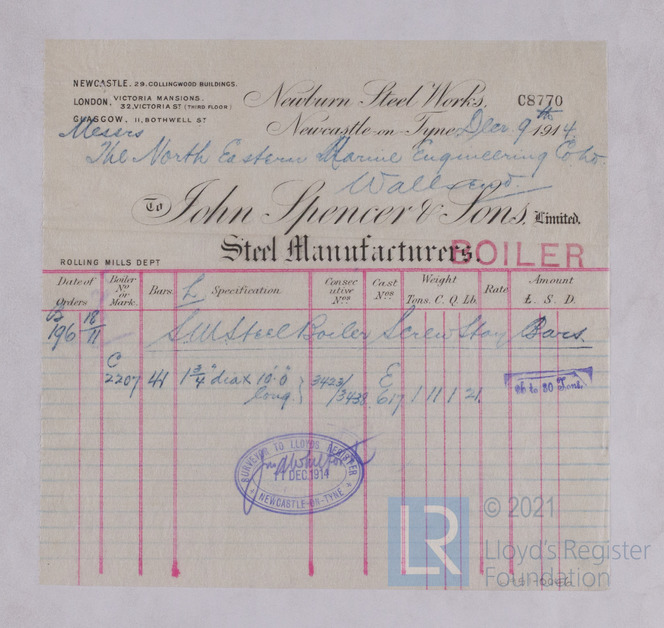 NEWCASTLE. 29. COLLINGWOOD BUILDINGS.
LONDON, VICTORIA MANSIONS. 32, VICTORIA ST (THIRD FLOOR)
GLASGOW, 11, BOTHWELL ST
Newburn Steel Works,
C8770
Newcastle-on-Tyne, Decr 9th 1914
Messrs
The North Eastern Marine Engineering Co Ltd.
Wallsend.
To John Spencer & Sons, Limited.
Steel Manufacturers.
BOILER
ROLLING MILLS DEPT
Date of Orders Boiler No or Mark. Bars. L Specification Consecutive Nos. Cast Nos. Weight Tons. C. Q. Lb. Rate Amount £. S. D.
196 18/11 SM Steel Boiler Screw Stay Bars.
C 2207 1¾" dia x 10'.0" long. } 3423/3438 E 617 1 11 1 21.
26 to 30 Tons.
SURVEYOR TO LLOYDS REGISTER
11 DEC. 1914
NEWCASTLE-ON-TYNE
LR
© 2021
Lloyd's Register
Foundation